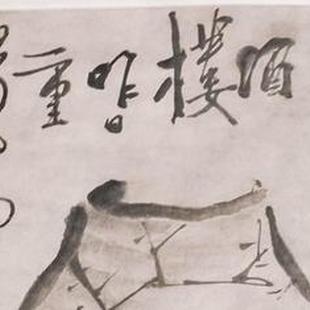 酒樓昨日重